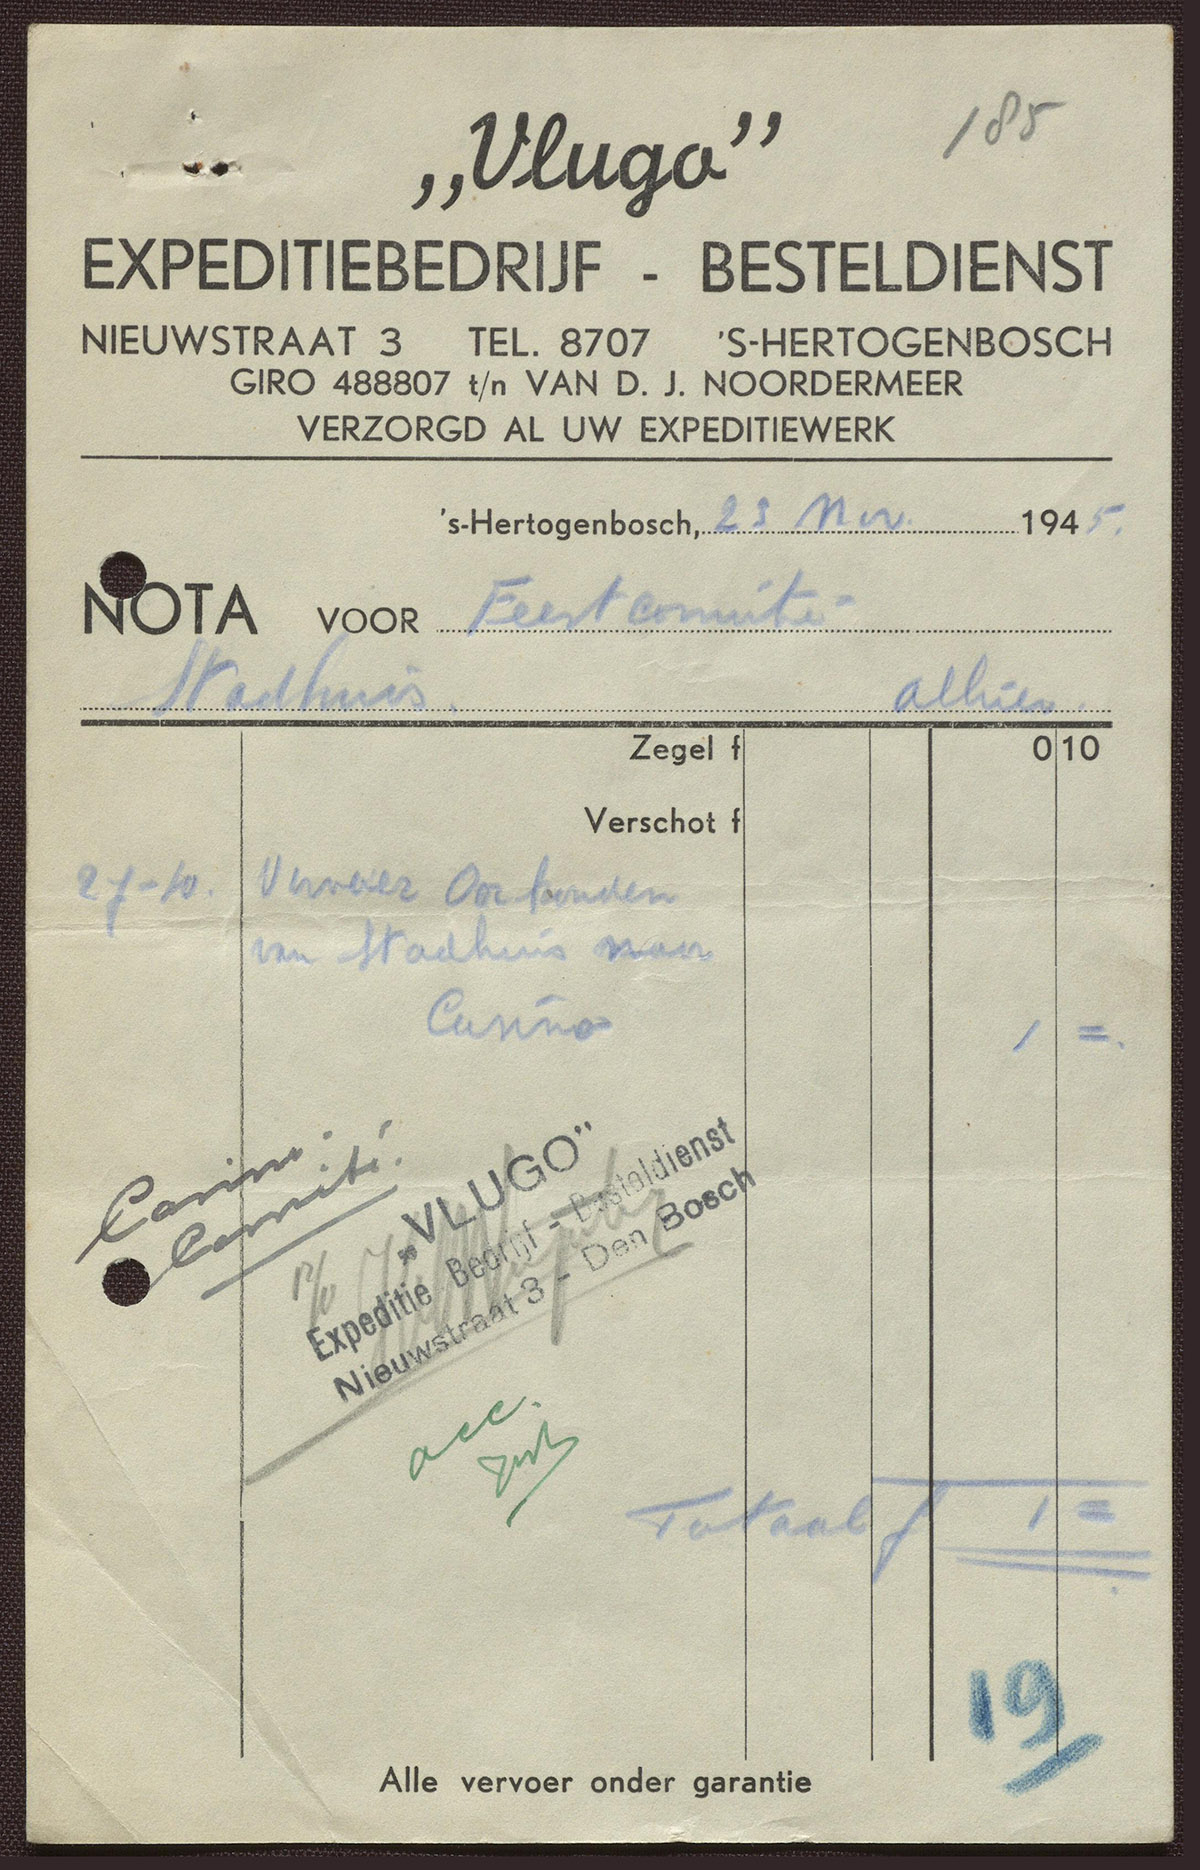 „Vlugo”
185
EXPEDITIEBEDRIJF - BESTELDIENST
NIEUWSTRAAT 3 TEL. 8707 'S-HERTOGENBOSCH
GIRO 488807 t/n VAN D. J. NOORDERMEER
VERZORGD AL UW EXPEDITIEWERK
's-Hertogenbosch, 23 Nov. 1945.
NOTA VOOR Feestcomité
Stadhuis. alhier.
Zegel f 0 10
Verschot f
27-10. Vervoer Oorkonden
van Stadhuis naar
Casino 1 =.
Casino.
Comité.
„VLUGO”
Expeditie Bedrijf - Besteldienst
Nieuwstraat 3 - Den Bosch
acc.
Totaal f 1 =
19
Alle vervoer onder garantie